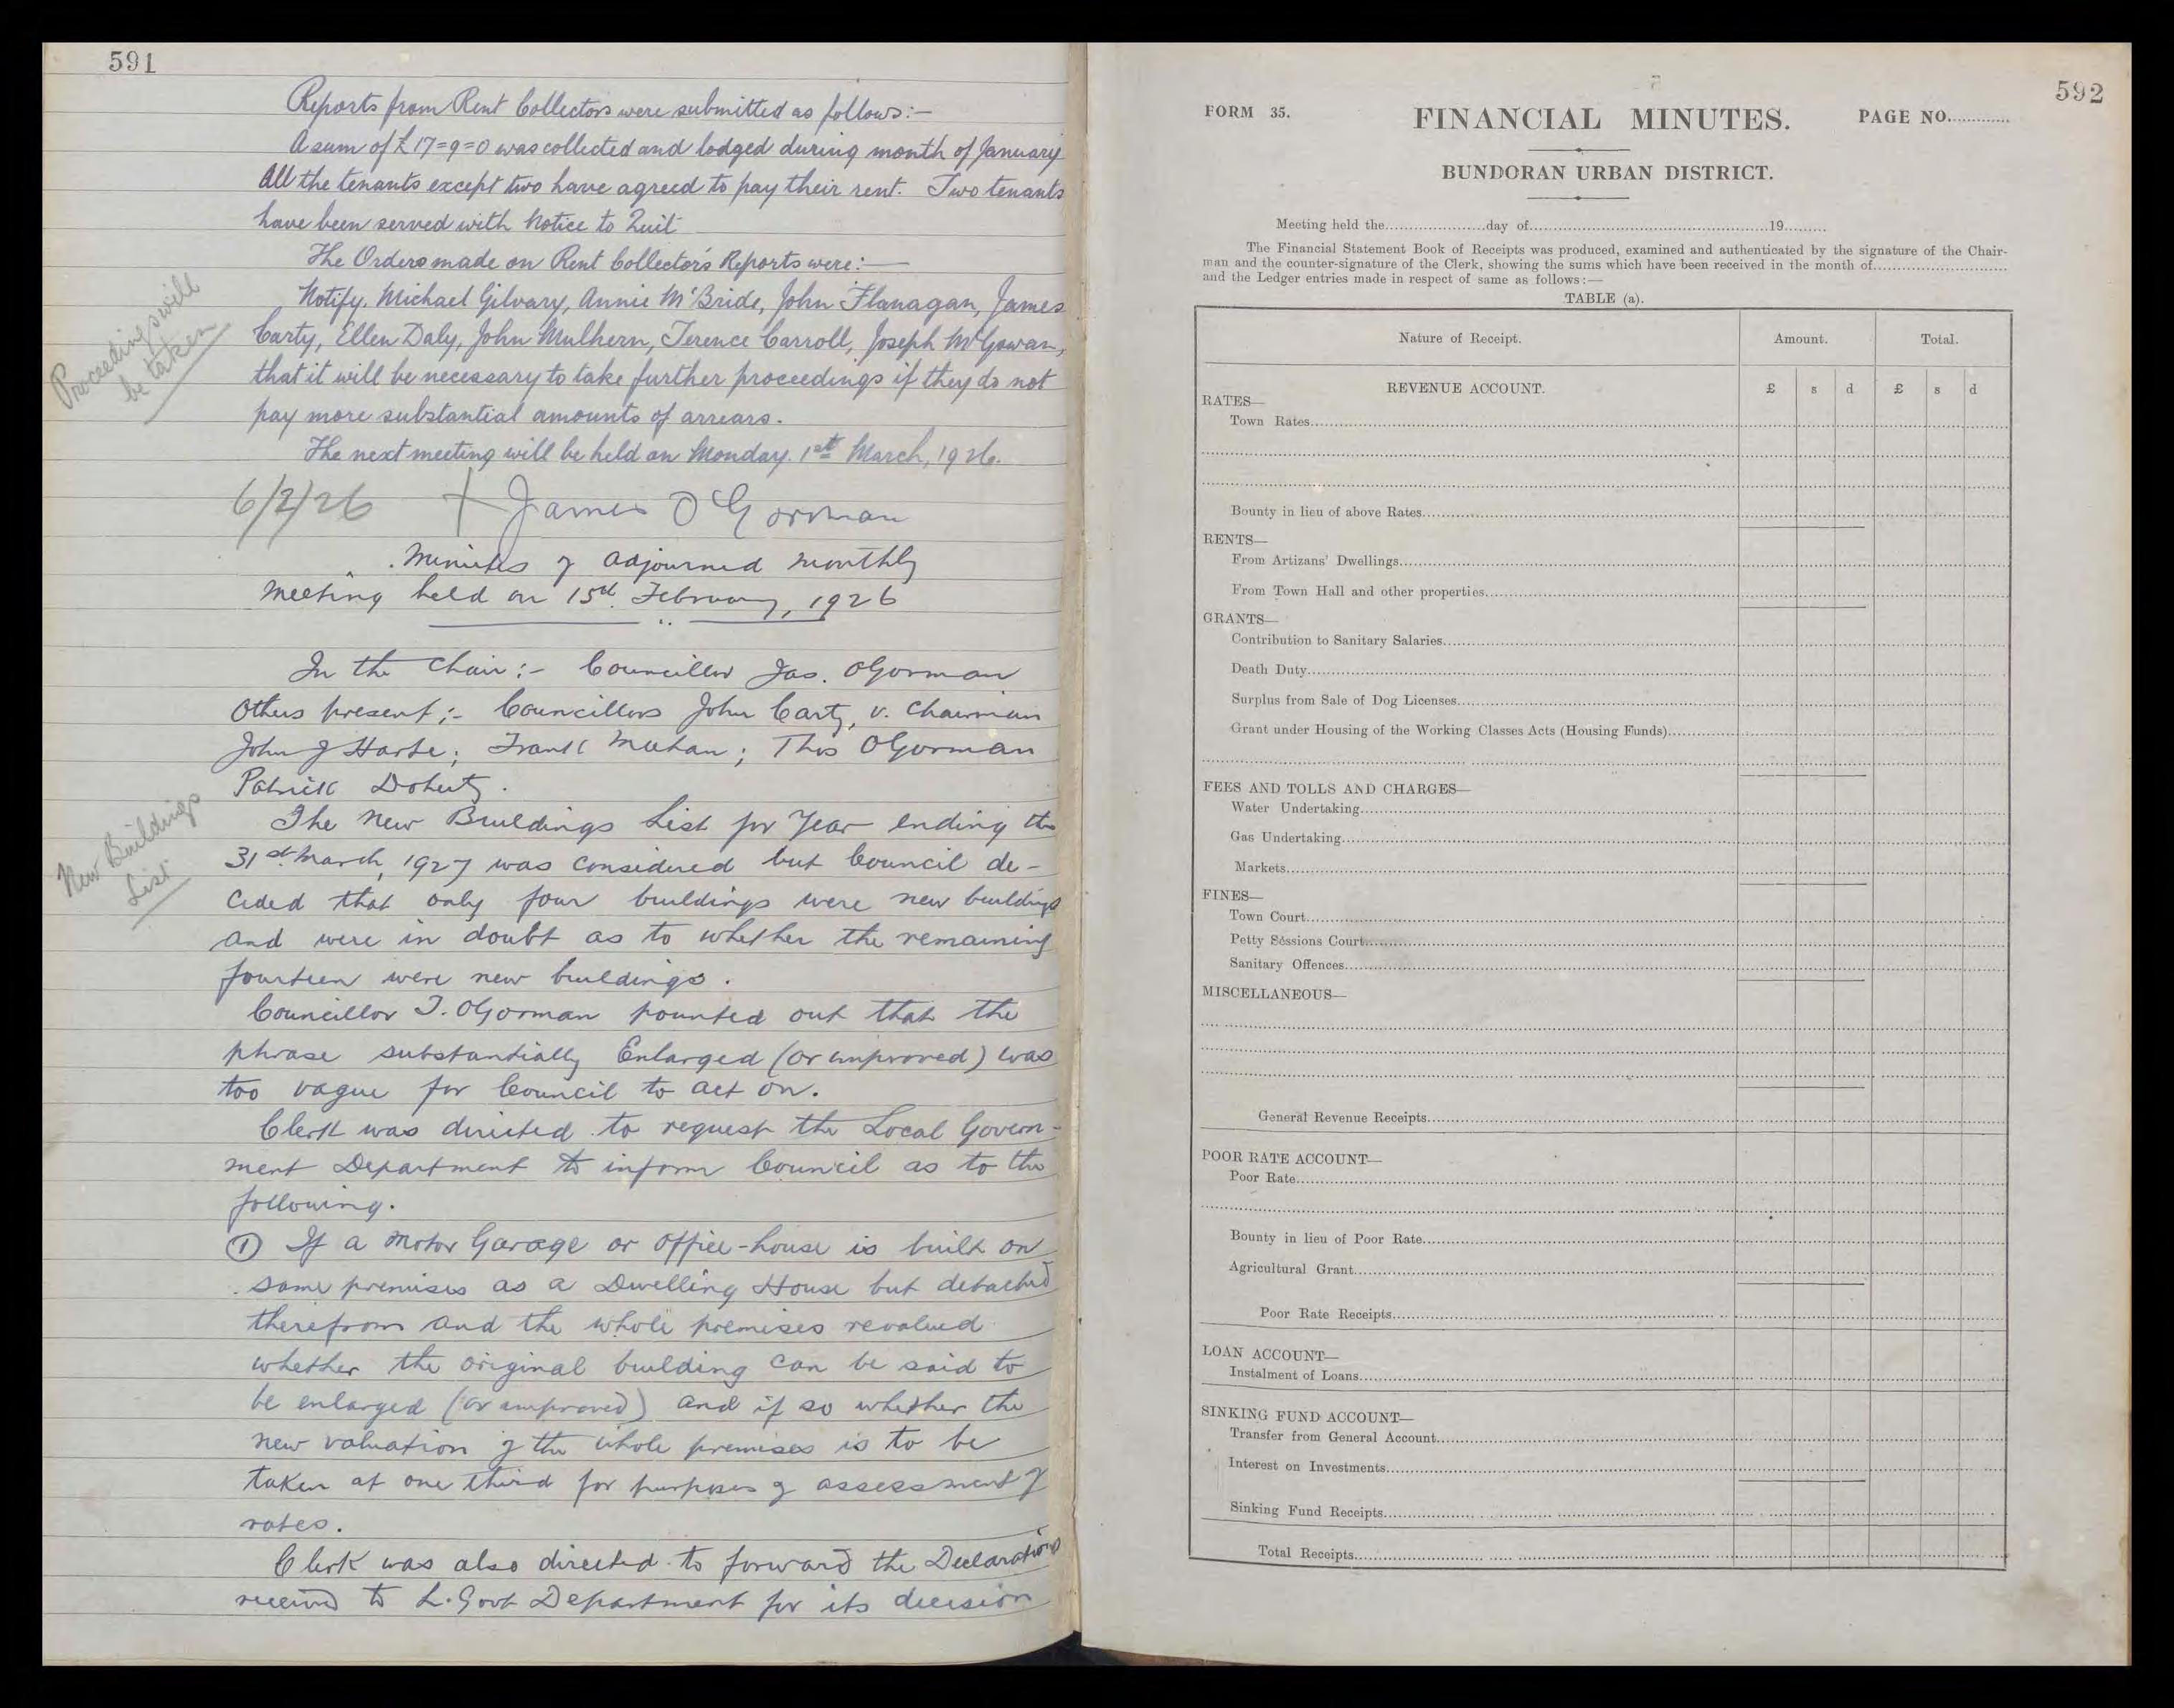 591
Reports from Rent Collectors were submitted as follows:-
A sum of £17=9=0 was collected and lodged during month of January
All the tenants except two have agreed to pay their rent. Two tenants
have been served with Notice to Quit
The Orders made on Rent Collector's Reports were:-
Proceedings will
be taken
Notify. Michael Gilvary, Annie McBride, John Flanagan, James
Carty, Ellen Daly, John Mulhern, Terence Carroll, Joseph McGowan,
that it will be necessary to take further proceedings if they do not
pay more substantial amounts of arrears.
The next meeting will be held on Monday. 1st March, 1926.
6/2/26 + James O Gorman
Minutes of adjourned monthly
meeting held on 15th February, 1926
In the Chair:- Councillor Jas. OGorman
Others present:- Councillors John Carty, v. Chairman
John J Harte; Frank Meehan; Thos OGorman
Patrick Doherty.
New Buildings
List
The New Buildings List for Year ending the
31st March, 1927 was considered but Council de-
cided that only four buildings were new buildings
and were in doubt as to whether the remaining
fourteen were new buildings.
Councillor T. OGorman pounted out that the
phrase substantially Enlarged (or improved) was
too vague for Council to act on.
Clerk was directed to request the Local Govern-
ment Department to inform Council as to the
following.
(1) If a motor Garage or office-house is built on
same premises as a Dwelling House but detached
therefrom and the whole premises revalued
whether the original building can be said to
be enlarged (or improved) and if so whether the
new valuation of the whole premises is to be
taken at one third for purposes of assessment of
rates.
Clerk was also directed to forward the Declarations
received to L. Govt Department for its decision
592
FORM 35. FINANCIAL MINUTES. PAGE NO............
BUNDORAN URBAN DISTRICT.
Meeting held the......................day of......................................................19.........
The Financial Statement Book of Receipts was produced, examined and authenticated by the signature of the Chair-
man and the counter-signature of the Clerk, showing the sums which have been received in the month of..............................
and the Ledger entries made in respect of same as follows:—
TABLE (a).
Nature of Receipt. Amount. Total.
REVENUE ACCOUNT. £ s d £ s d
RATES—
Town Rates
Bounty in lieu of above Rates
RENTS—
From Artizans' Dwellings
From Town Hall and other properties
GRANTS—
Contribution to Sanitary Salaries
Death Duty
Surplus from Sale of Dog Licenses
Grant under Housing of the Working Classes Acts (Housing Funds)
FEES AND TOLLS AND CHARGES—
Water Undertaking
Gas Undertaking
Markets
FINES—
Town Court
Petty Sessions Court
Sanitary Offences
MISCELLANEOUS—
General Revenue Receipts
POOR RATE ACCOUNT—
Poor Rate
Bounty in lieu of Poor Rate
Agricultural Grant
Poor Rate Receipts
LOAN ACCOUNT—
Instalment of Loans
SINKING FUND ACCOUNT—
Transfer from General Account
Interest on Investments
Sinking Fund Receipts
Total Receipts